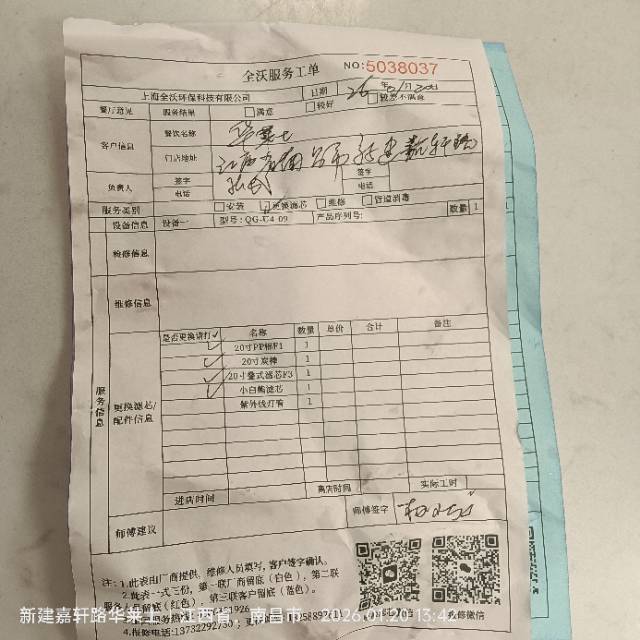 全沃服务工单
NO:5038037
上海全沃环保科技有限公司
日期 26年01月20日
餐厅意见 服务结果 满意 较好 较差不满意
客户信息 餐饮名称 华莱士
门店地址 江西省南昌市新建嘉轩路
负责人 签字 签字
电话 电话
服务类别 安装 更换滤芯 维修 管道消毒
设备信息 设备一 型号:QG-U4-09 产品序列号: 数量 1
检修信息
维修信息
服务信息
更换滤芯/配件信息
是否更换请打✓ 名称 数量 单价 合计 备注
✓ 20寸PP棉F1 1
✓ 20寸炭棒 1
✓ 20寸叠式滤芯F3 1
✓ 小白鲸滤芯 1
紫外线灯管 1
进店时间 离店时间 实际工时
师傅建议 师傅签字
注:1.此表由厂商提供,维修人员填写,客户签字确认。
2.此表一式三份,第一联厂商留底(白色),第二联
留底(红色),第三联客户留底(蓝色)。
4.报修电话:13732292730
维修微信
新建嘉轩路华莱士 | 江西省,南昌市 2026.01.20 13:42